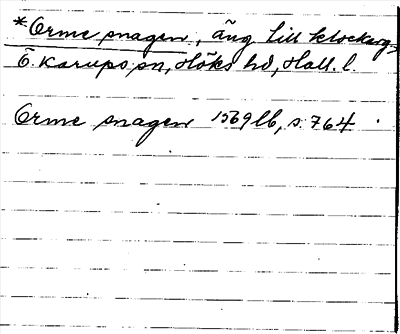 *Orme snagen, äng till klockareg.
Ö. Karups sn, Höks hd, Hall. l
Orme snagen 1569 lb, s. 764